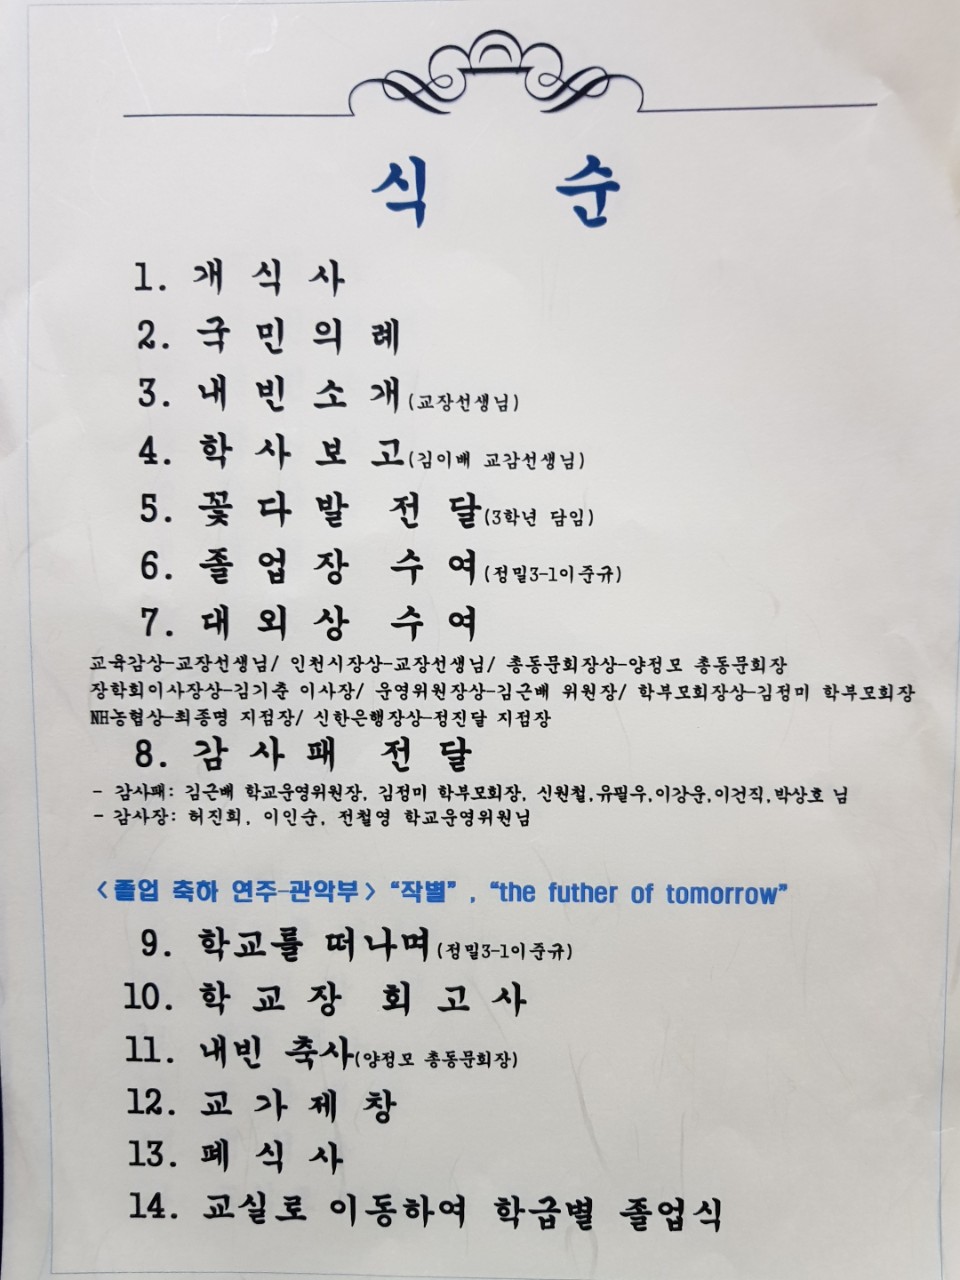 식 순
1. 개 식 사
2. 국 민 의 례
3. 내 빈 소 개(교장선생님)
4. 학 사 보 고(김이배 교감선생님)
5. 꽃 다 발 전 달(3학년 담임)
6. 졸 업 장 수 여(정밀3-1이준규)
7. 대 외 상 수 여
교육감상-교장선생님/ 인천시장상-교장선생님/ 총동문회장상-양정모 총동문회장
장학회이사장상-김기춘 이사장/ 운영위원장상-김근배 위원장/ 학부모회장상-김정미 학부모회장
NH농협상-최종명 지점장/ 신한은행장상-정진달 지점장
8. 감 사 패 전 달
- 감사패: 김근배 학교운영위원장, 김정미 학부모회장, 신원철,유필우,이강운,이건직,박상호 님
- 감사장: 허진희, 이인순, 전철영 학교운영위원님
<졸업 축하 연주-관악부> “작별” , “the futher of tomorrow”
9. 학교를 떠나며(정밀3-1이준규)
10. 학 교 장 회 고 사
11. 내빈 축사(양정모 총동문회장)
12. 교 가 제 창
13. 폐 식 사
14. 교실로 이동하여 학급별 졸업식